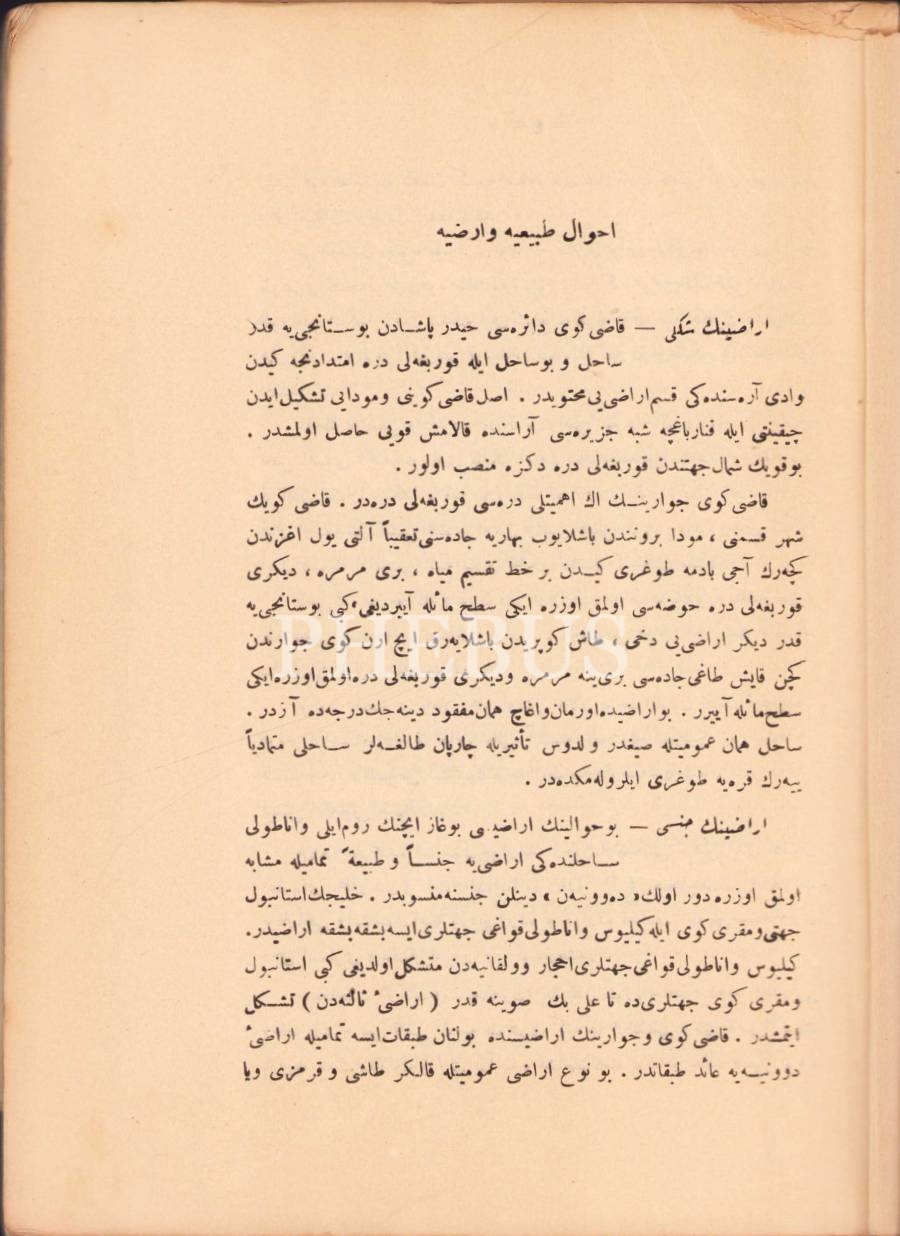 احوال طبیعیه وارضیه
اراضینك شكلی — قاضی‌كوی دائره‌سی حیدر پاشـادن بوسـتانجی‌یه قدر
ساحل و بوساحل ایله قوربغه‌لی دره امتدادنجه كیدن
وادی آره‌سنده‌كی قسم اراضی‌یی محتویدر . اصل قاضی‌كوینی ومودایی تشكیل ایدن
چیقینتی ایله فنارباغچه شبه جزیره‌سی آراسنده قالامش قویی حاصل اولمشدر .
بوقویك شمال جهتندن قوربغه‌لی دره دكزه منصب اولور .
قاضی‌كوی جوارینـك اك اهمیتلی دره‌سی قوربغه‌لی دره‌در . قاضی كویك
شهر قسمنی ، مودا بروننندن باشلایوب بهاریه جاده‌سنی تعقیباً آلتی یول اغزندن
كچه‌رك آجی بادمه طوغری كیـدن بر خط تقسیم میاه ، بری مرمره ، دیكری
قوربغه‌لی دره حوضه‌سی اولمق اوزره ایكی سطح مائله آییردیغی كبی بوستانجی‌یه
قدر دیكر اراضی‌یی دخی ، طاش كوپریدن باشلایه‌رق ایچ ارن كوی جوارندن
كچن قایش طاغی جاده‌سی بری‌ینه مرمره ودیكری قوربغه‌لی دره اولمق اوزره ایكی
سطح مائله آییرر . بواراضیده اورمان واغاچ همان مفقود دینه‌جك درجه‌ده آزدر .
ساحل همان عمومیتله صیغدر ولدوس تأثیریله چارپان طالغـه‌لر سـاحلی متمادیاً
ییه‌رك قره‌یه طوغری ایلروله‌مكده‌در .
اراضینك جنسی — بوحوالینك اراضیسی بوغاز ایچنك روم‌ایلی واناطولی
سـاحلنده‌كی اراضی‌یه جنسـاً و طبیعةً تمامیله مشابه
اولمق اوزره دور اولك « ده‌وونیه‌ن » دینلن جنسنه منسوبدر . خلیجك استانبول
جهتی ومقری كوی ایله كیلیوس واناطولی قواغی جهتلری ایسه بشقه بشقه اراضیدر.
كیلیوس واناطولی قواغی جهتلری احجار وولقانیه‌دن متشكل اولدیغی كبی استانبول
ومقری كوی جهتلری‌ده تا علی بك صوینه قدر ( اراضیٔ ثالثه‌دن ) تشـكل
ایتمشدر . قاضی‌كوی وجوارینك اراضیسنده بولنان طبقات ایسه تمامیله اراضیٔ
دوونیـه‌یه عائد طبقاتدر . بو نوع اراضی عمومیتله قالكر طاشی و قرمزی ویا
PHEBUS